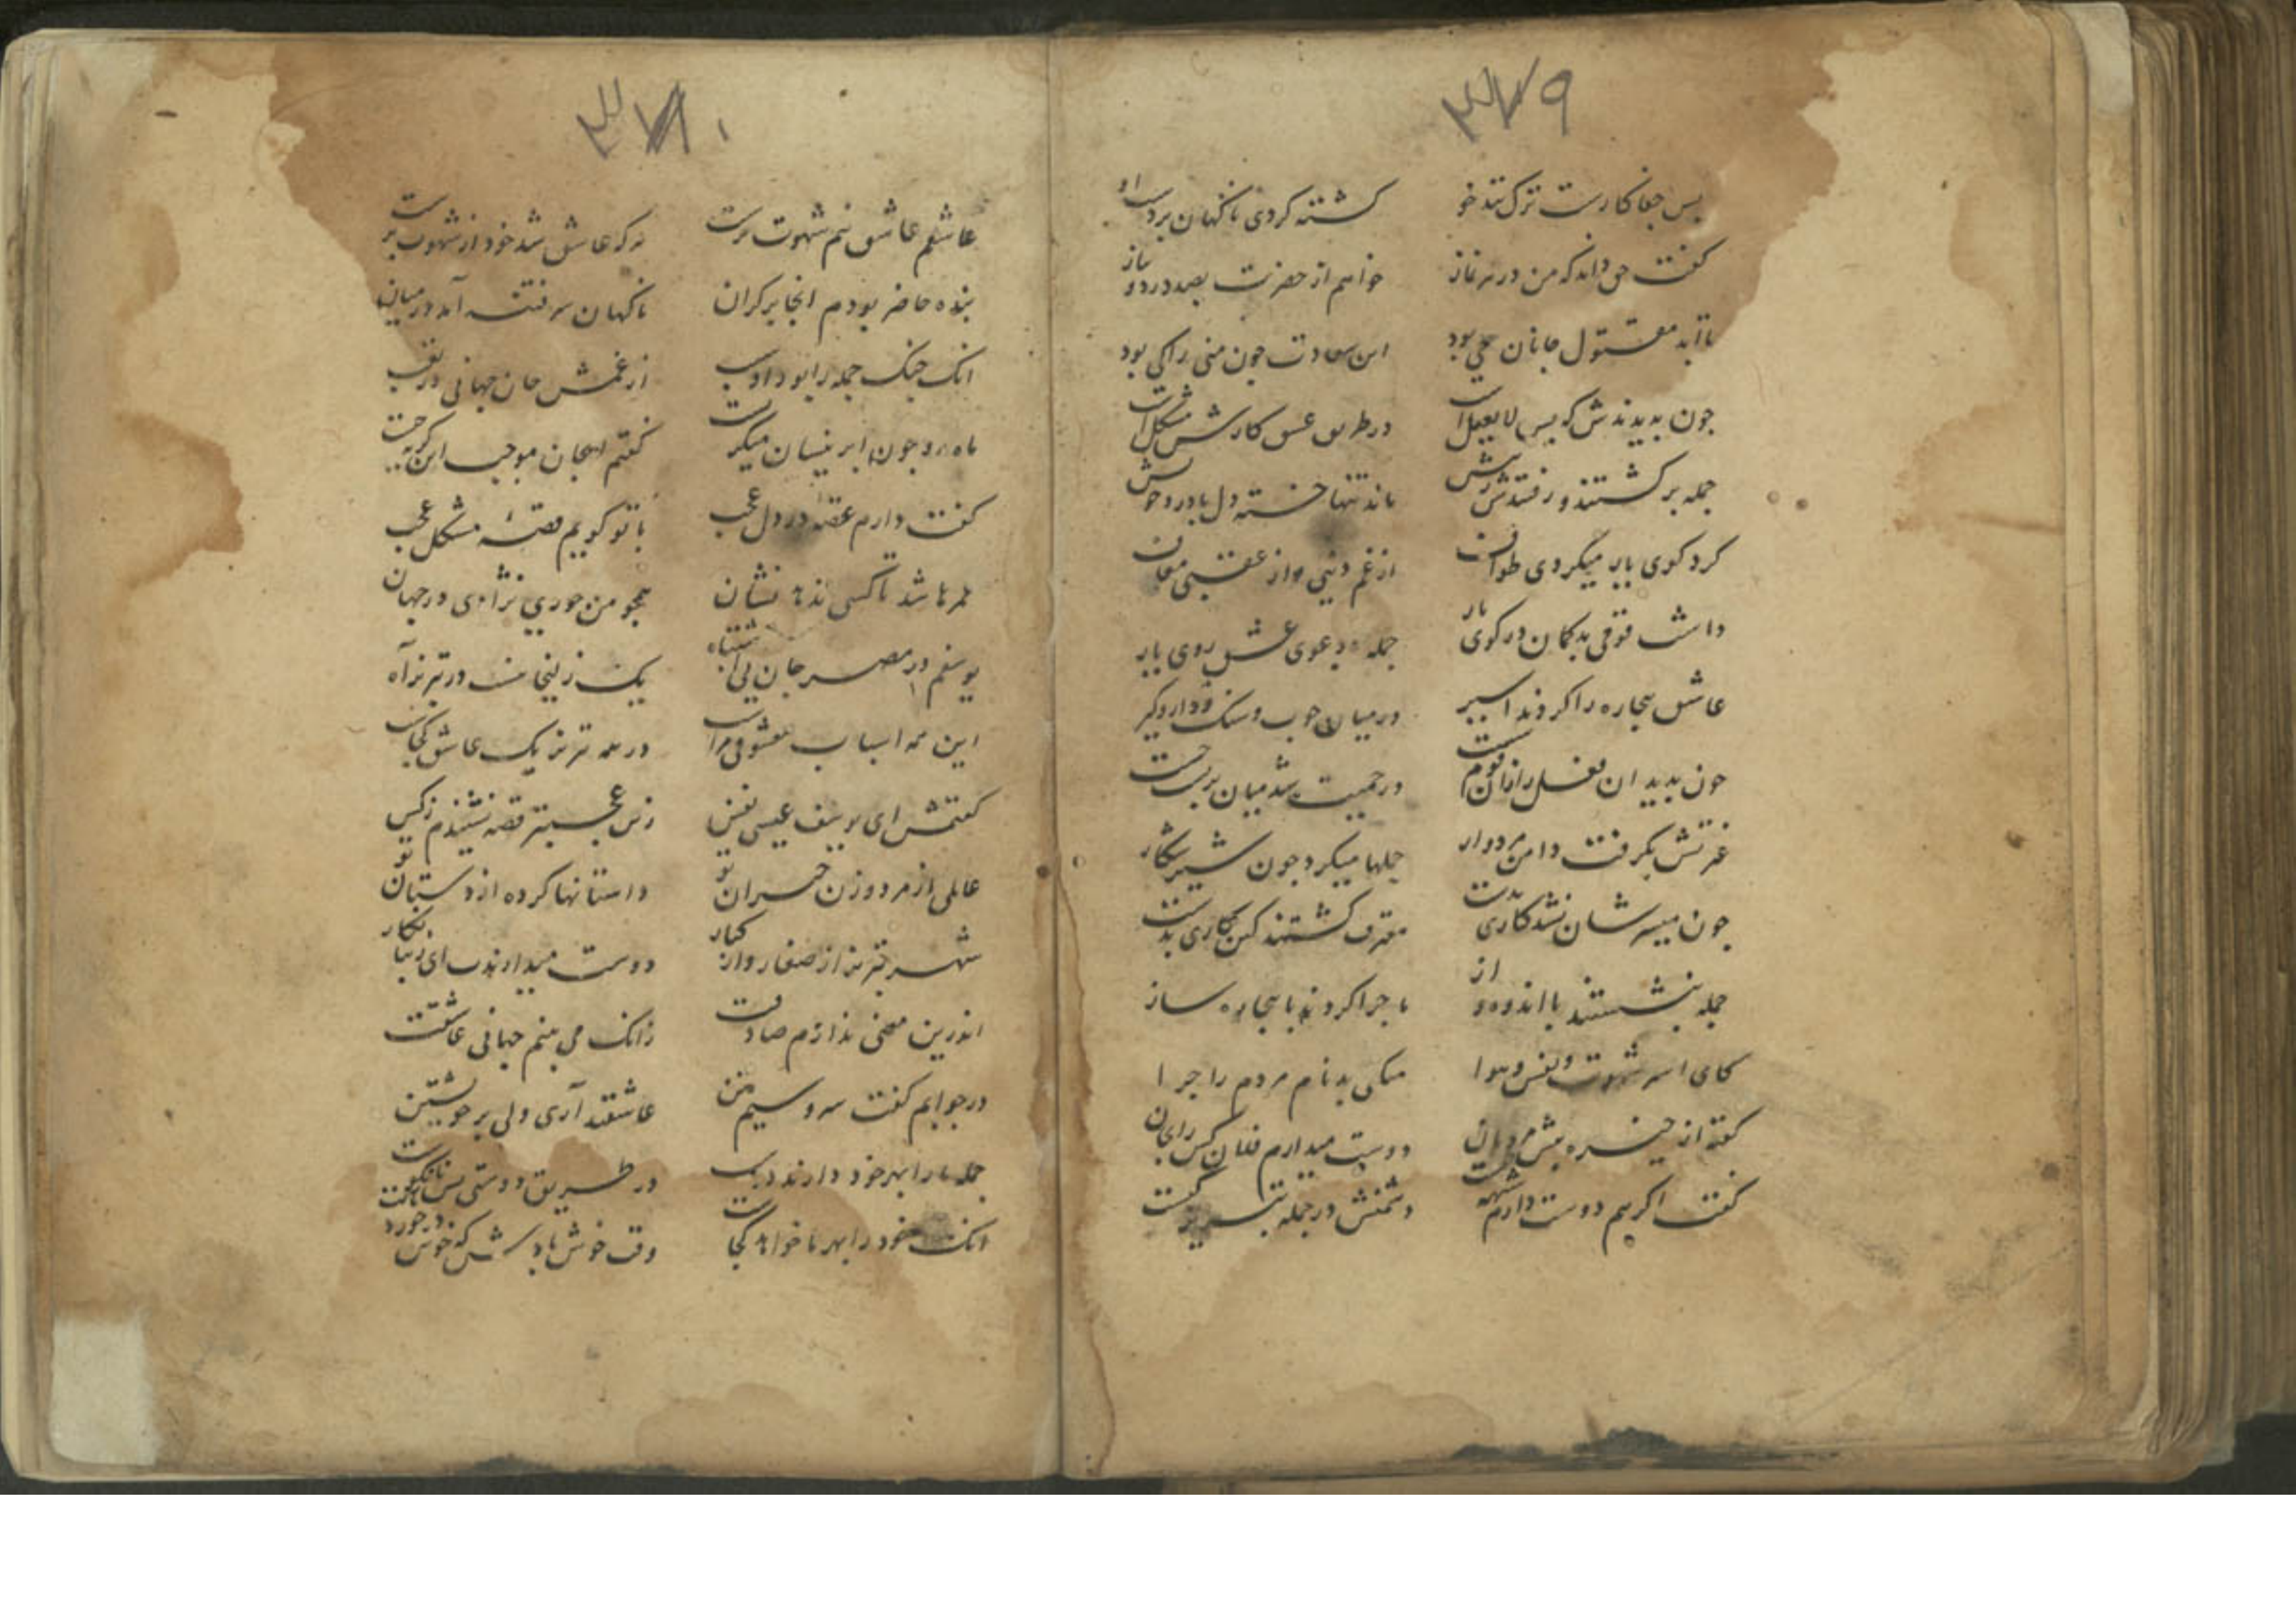 ۳۷۹
بس جفا کارست ترک تند خو کشته کردی ناگهان بر دست او
گفت حق داند که من در هر نماز خواهم از حضرت بصد درد و نیاز
تا ابد مقتول جانان حی بود این سعادت جون منی را کی بود
جون بدیدندش که بس لا یعقل است در طریق عشق کارش مشکل است
جمله برگشتند و رفتندش ز پیش ماند تنها خسته دل با درد خویش
گرد کوی یار میکردی طواف از غم دنیی و از عقبی معاف
داشت قومی بدگمان در کوی یار جمله در دعوی عشق روی یار
عاشق بیجاره را کردند اسیر در میان جوب و سنک و دار و گیر
جون بدید ان فعل را زان قوم در حمیت شد میان بربست
غیرتش بگرفت دامن مردوار حملها میکرد جون شیر شکار
جون میسرشان نشد کاری بدست معترف گشتند کین کاری بدست
جمله بنشستند با اندوه و از ماجرا کردند با بیجاره ساز
کای اسیر شهوت و نفس و هوا میکنی بدنام مردم را جرا
گفته از خیره پیش مردمان دوست میدارم فلان کس را بجان
گفت اگر هم دوست دارم دشمنش در جمله تبریز کیست
۳۸۰
عاشقم عاشق نیم شهوت پرست هر که عاشق شد خود از شهوت برست
بنده حاضر بودم انجا بر کران ناگهان سر فتنه آمد در میان
انک جنک جمله را بود او سبب از غمش جان جهانی در تعب
ماه رو جون ابر نیسان میگریست گفتم ای جان موجب این گریه جیست
گفت دارم غصه در دل عجب با تو گویم قصه مشکل عجب
عمرها شد تا کسی ندهد نشان همجو من حوری نژادی در جهان
یوسفم در مصر جان بی اشتباه یک زلیخا نیست در تبریز آه
این همه اسباب معشوقی مراست در همه تبریز یک عاشق کجاست
گفتمش ای یوسف عیسی نفس زین عجبتر قصه نشنیدم ز کس
عالمی از مرد و زن حیران تو داستانها کرده از دستان تو
شهر تبریز از صغار و از کبار دوست میدارندت ای زیبا نگار
اندرین معنی ندارم صادقت زانک می بینم جهانی عاشقت
در جوابم گفت سرو سیم تن عاشقند آری ولی بر خویشتن
جمله ما را بهر خود دارند دوست در طریق دوستی بس نا نکوست
انک خود را بهر ما خواهد کجاست وقت خوش بادش که خوش